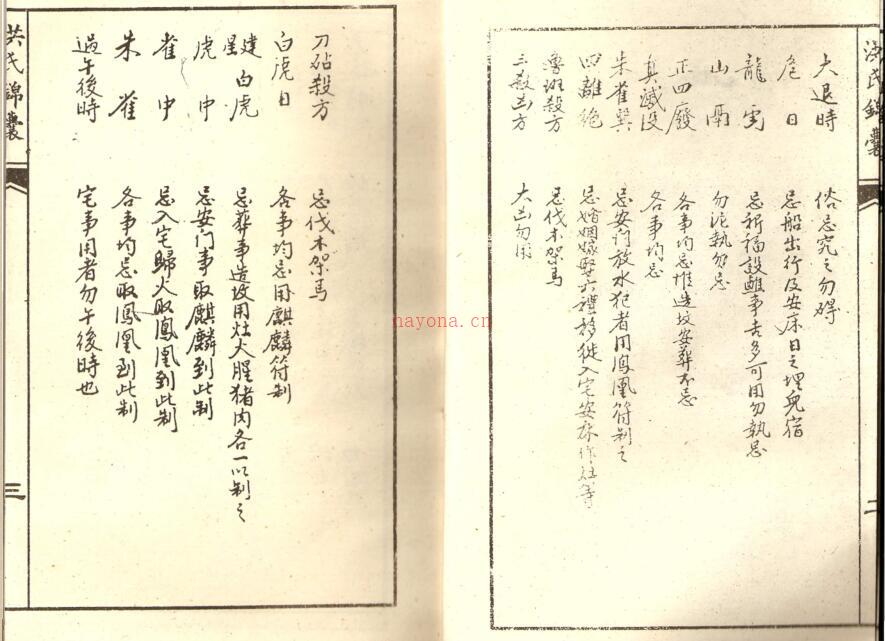 洪氏錦囊
二
大退時 俗忌究之勿碍
危日 忌船出行及安床日之埋兒宿
龍虎 忌祈福設醮事吉多可用勿執忌
山鬲 勿泥執勿忌
正四廢 各事均忌惟造坟安葬不忌
真滅没 各事均忌
朱雀巽 忌安门放水犯者用鳳凰符制之
四離絶 忌婚姻嫁娶六禮移徙入宅安床作灶等
魯班殺方 忌伐木架馬
三殺凶方 大凶勿用
刀砧殺方 忌伐木架馬
白虎日 各事均忌用麒麟符制
建星白虎 忌葬事造坟用灶火腥猪肉各一以制之
虎中 忌安门事取麒麟到此制
雀中 忌入宅歸火取鳳凰到此制
朱雀 各事均忌取鳳凰到此制
過午後時 宅事用者勿午後時也
洪氏錦囊
三
nayona.cn